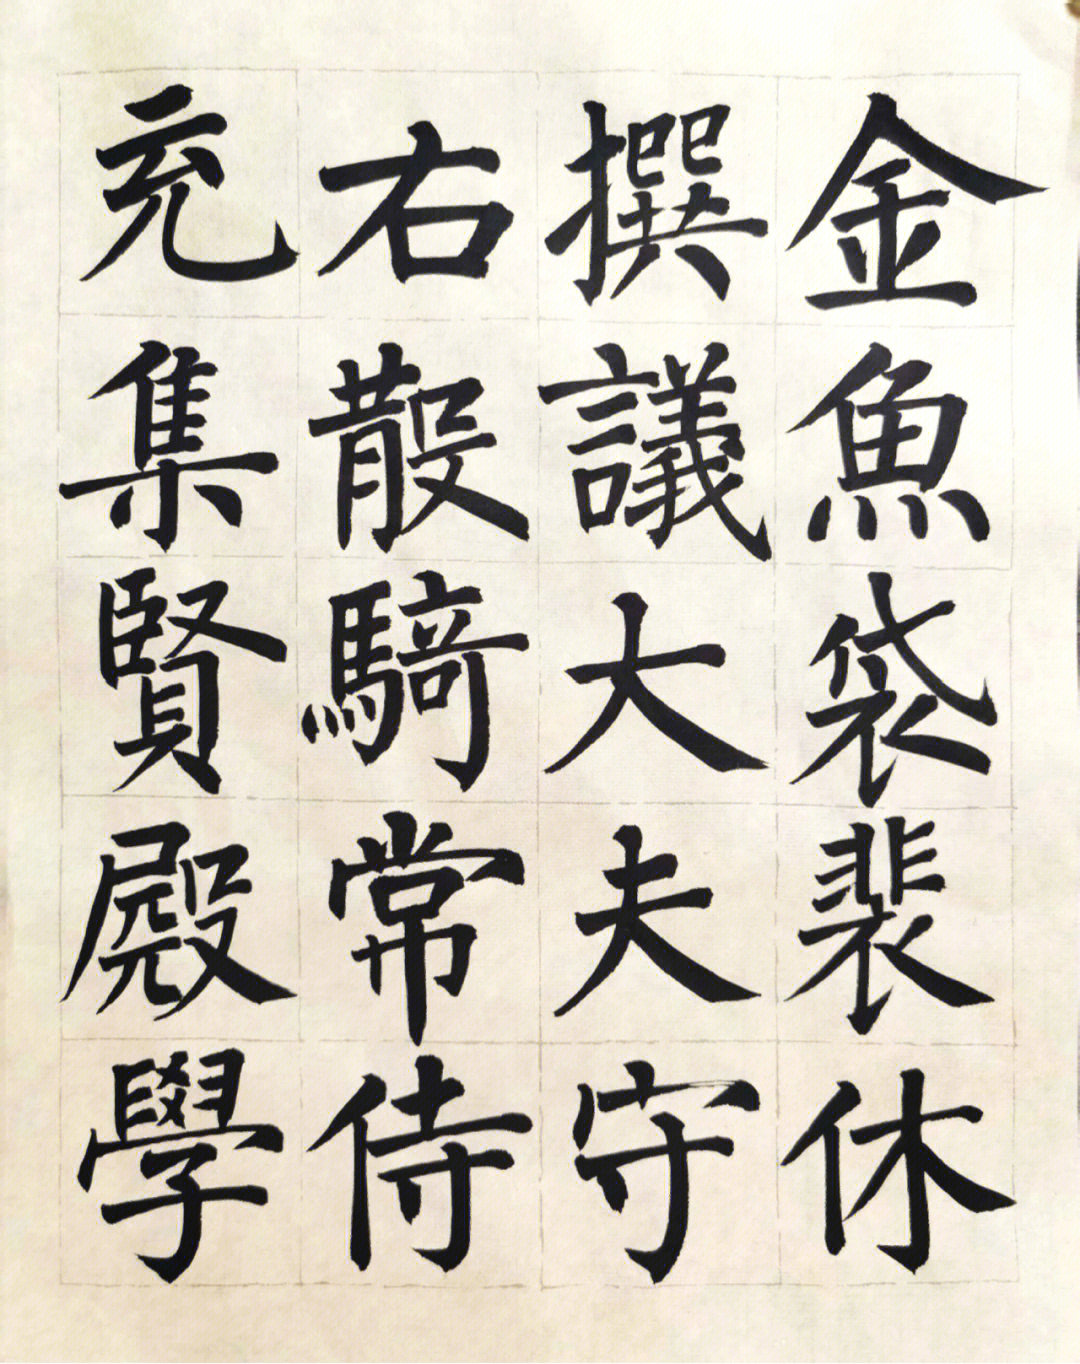 金魚袋裴休
撰議大夫守
右散騎常侍
充集賢殿學